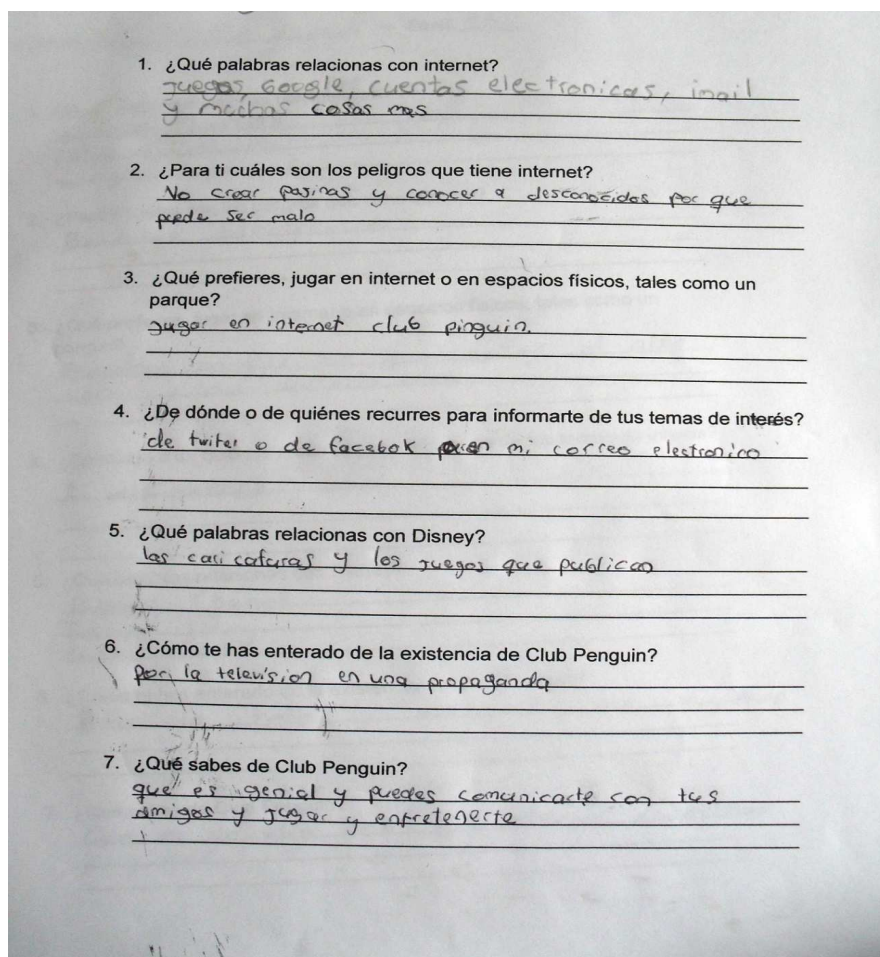 1. ¿Qué palabras relacionas con internet?
juegos, Google, cuentas electronicas, imail
y muchas cosas mas
2. ¿Para ti cuáles son los peligros que tiene internet?
No crear pasinas y conocer a desconocidos por que
puede ser malo
3. ¿Qué prefieres, jugar en internet o en espacios físicos, tales como un
parque?
jugar en internet club pinguin.
4. ¿De dónde o de quiénes recurres para informarte de tus temas de interés?
de twiter o de facebok en mi correo electronico
5. ¿Qué palabras relacionas con Disney?
las caricaturas y los juegos que publican
6. ¿Cómo te has enterado de la existencia de Club Penguin?
Por la television en una propaganda
7. ¿Qué sabes de Club Penguin?
que es genial y puedes comunicarte con tus
amigos y jugar y entretenerte